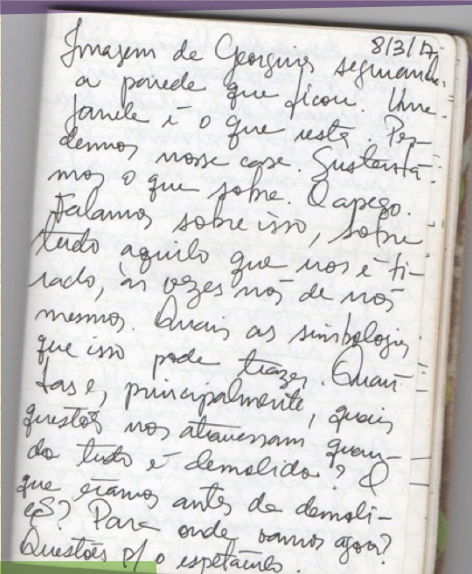 8/3/17
Imagem de Georginis segurando
a parede que ficou. Uma
janela é o que resta. Per-
demos nossa casa. Sustentá-
mos o que sobra. O apego.
Falamos sobre isso, sobre
tudo aquilo que nos é ti-
rado, às vezes nós de nós
mesmos. Quais as simbologias
que isso pode trazer. Quan-
tas e, principalmente, quais
questões nos atravessam quan-
do tudo é demolido? O
que éramos antes da demoli-
ção? Para onde vamos agora?
Questões p/ o espetáculo.